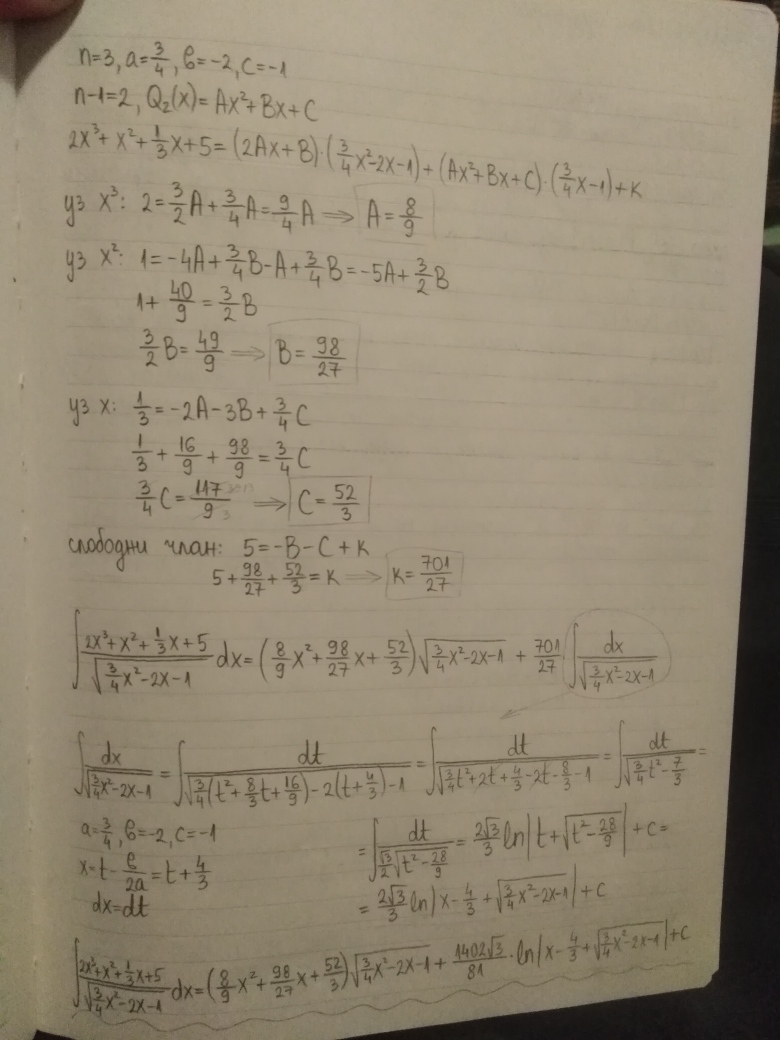 n=3, a=3/4, b=-2, c=-1
n-1=2, Q₂(x)=Ax²+Bx+C
2x³+x²+1/3x+5=(2Ax+B)·(3/4x²-2x-1)+(Ax²+Bx+C)·(3/4x-1)+K
уз x³: 2=3/2A+3/4A=9/4A ⟹ A=8/9
уз x²: 1=-4A+3/4B-A+3/4B=-5A+3/2B
1+40/9=3/2B
3/2B=49/9 ⟹ B=98/27
уз x: 1/3=-2A-3B+3/4C
1/3+16/9+98/9=3/4C
3/4C=117/9 ⟹ C=52/3
слободни члан: 5=-B-C+K
5+98/27+52/3=K ⟹ K=701/27
∫(2x³+x²+1/3x+5)/√(3/4x²-2x-1) dx=(8/9x²+98/27x+52/3)√(3/4x²-2x-1) + 701/27 ∫dx/√(3/4x²-2x-1)
∫dx/√(3/4x²-2x-1) = ∫dt/√(3/4(t²+8/3t+16/9)-2(t+4/3)-1) = ∫dt/√(3/4t²+2t+4/3-2t-8/3-1) = ∫dt/√(3/4t²-7/3) =
a=3/4, b=-2, c=-1
x=t-b/2a=t+4/3
dx=dt
=∫dt/(√3/2 √(t²-28/9)) = 2√3/3 ln|t+√(t²-28/9)| +c=
= 2√3/3 ln|x-4/3+√(3/4x²-2x-1)| + c
∫(2x³+x²+1/3x+5)/√(3/4x²-2x-1) dx=(8/9x²+98/27x+52/3)√(3/4x²-2x-1) + 1402√3/81 · ln|x-4/3+√(3/4x²-2x-1)|+c